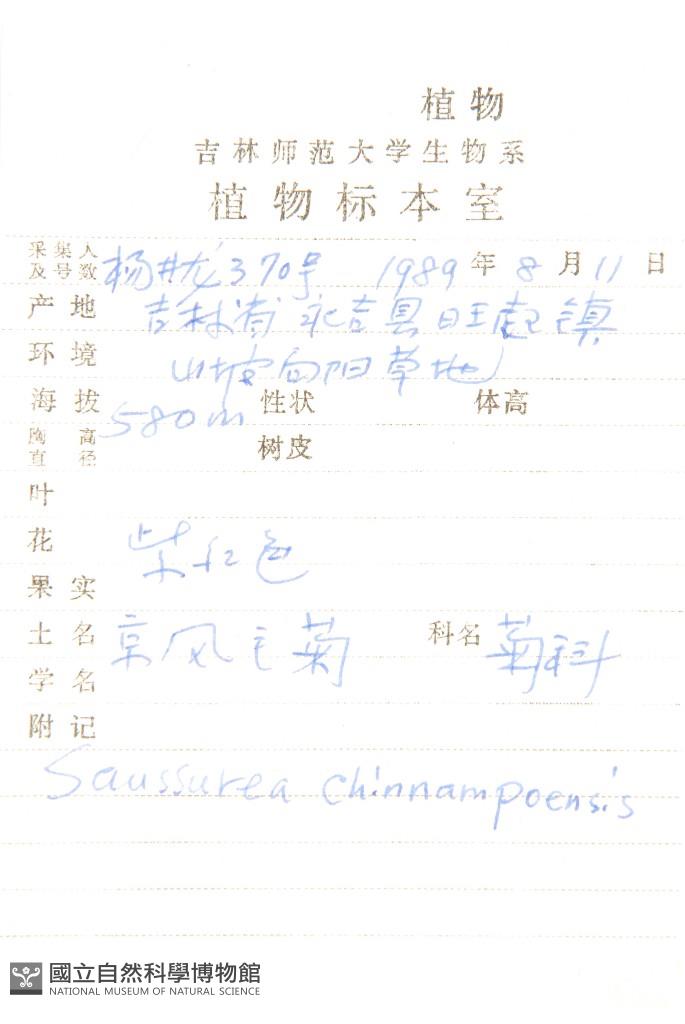 植物
吉林师范大学生物系
植物标本室
采集人及号数 杨井龙370号 1989年8月11日
产地 吉林省永吉县旺起镇
环境 山坡向阳草地
海拔 580m 性状 体高
胸高直径 树皮
叶
花 紫红色
果实
土名 京风毛菊 科名 菊科
学名
附记
Saussurea chinnampoensis
國立自然科學博物館
NATIONAL MUSEUM OF NATURAL SCIENCE